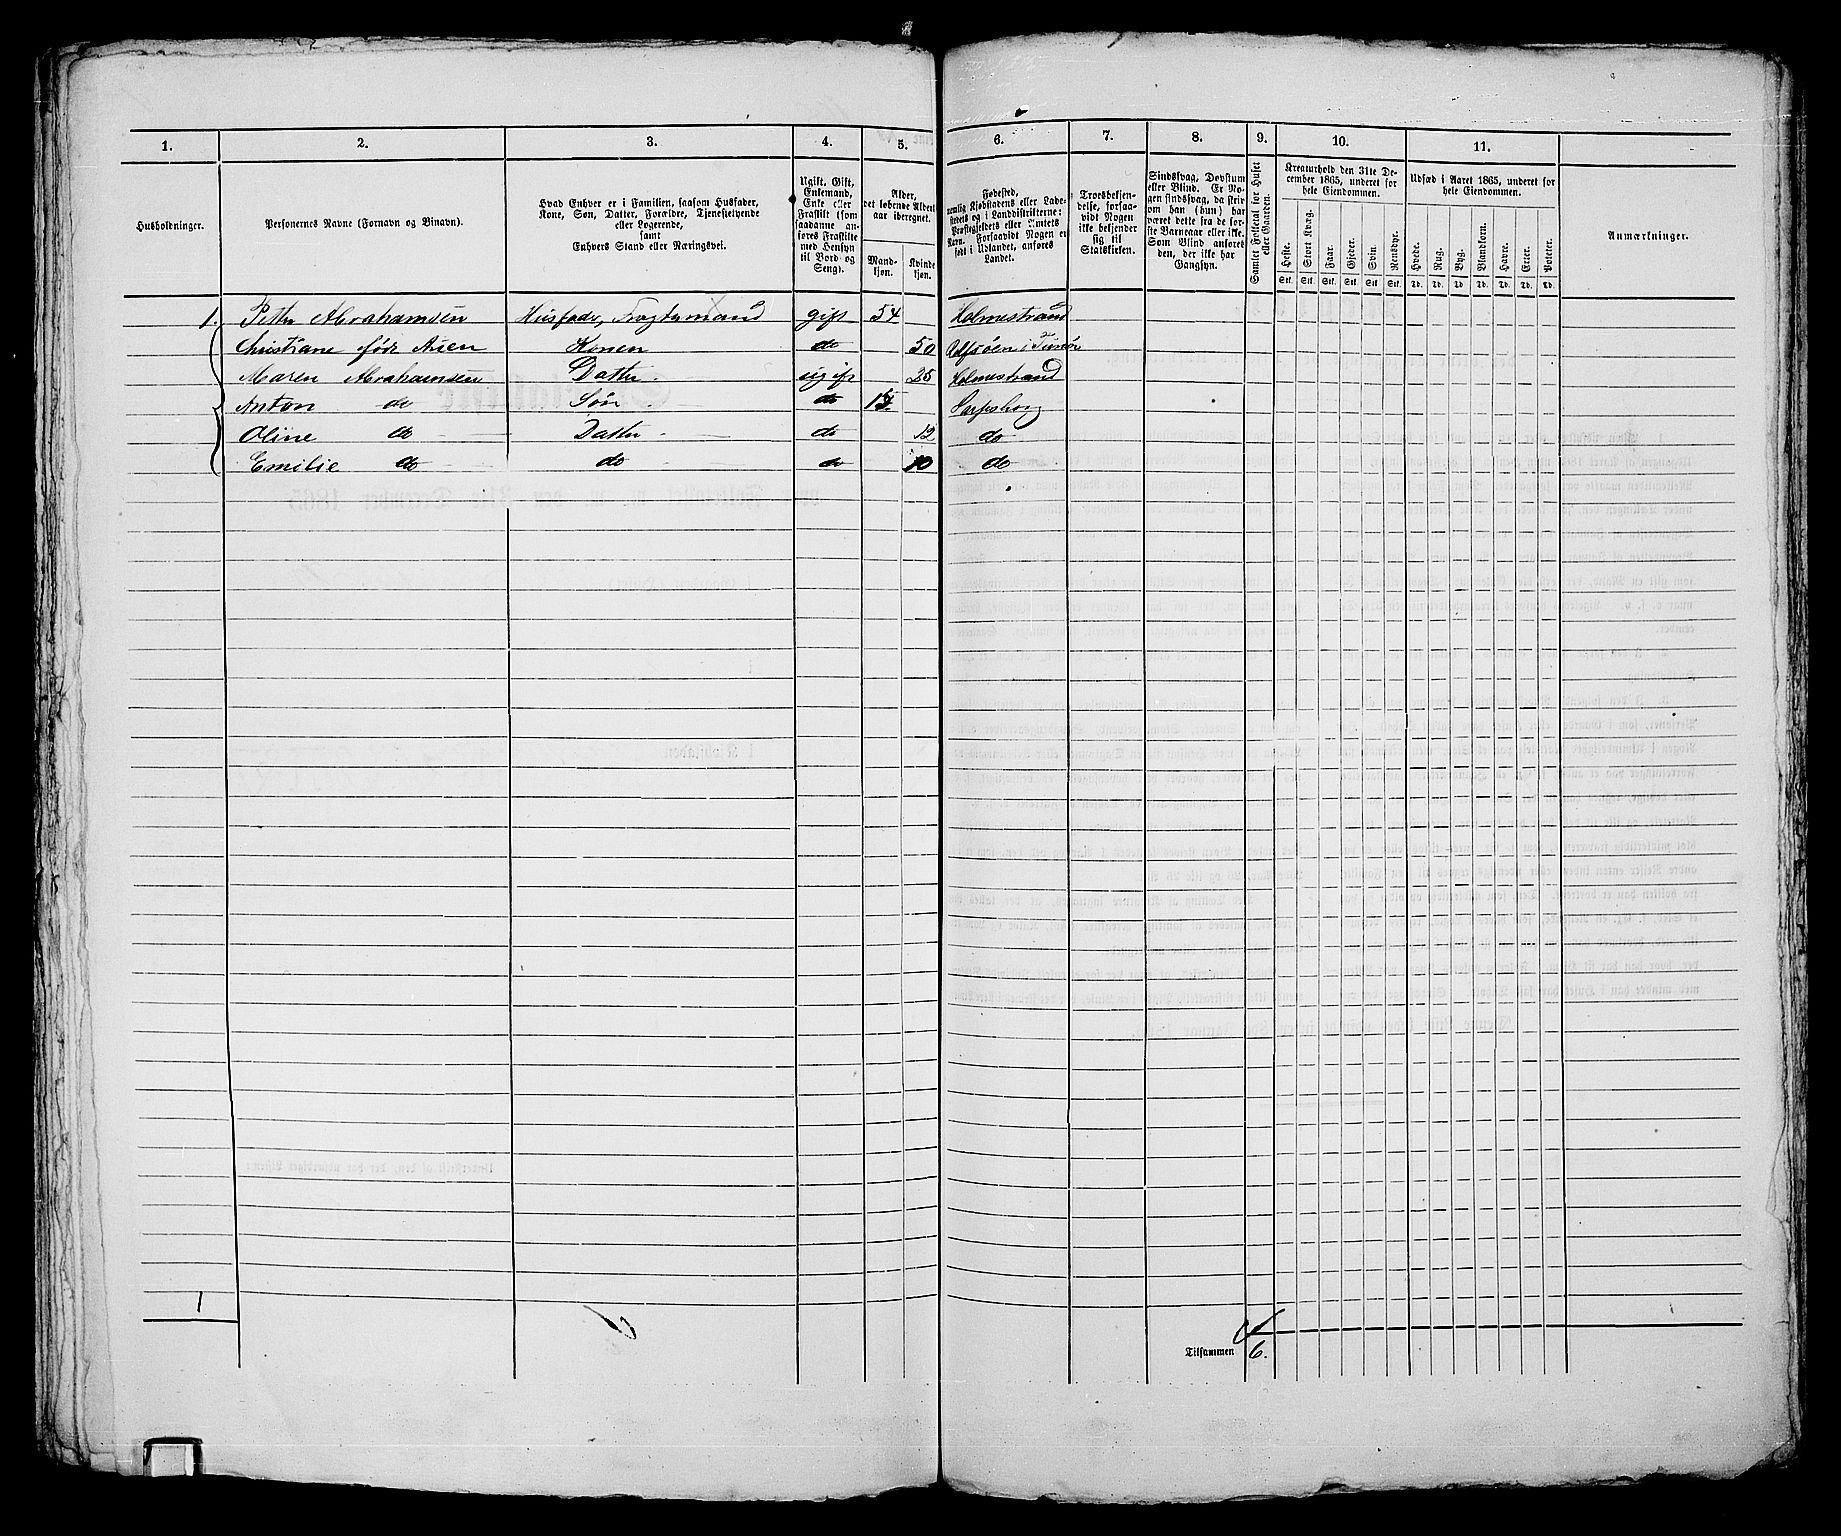 1. 2. 3. 4. 5. 6. 7. 8. 9. 10. 11.
Husholdninger.
Personernes Navne (Fornavn og Binavn).
Hvad Enhver er i Familien, saasom Husfader, Kone, Søn, Datter, Forældre, Tjenestetyende eller Logerende, samt Enhvers Stand eller Næringsvei.
Ugift, Gift, Enkemand, Enke eller Fraskilt (som saadanne anføres Fraskilte med Hensyn til Bord og Seng).
Alder, det løbende Alders aar iberegnet.
Mandkjøn. Kvindekjøn.
Fødested, nemlig Kjøbstadens eller Ladestedets og i Landdistrikterne: Præstegjeldets eller Amtets Navn. Forsaavidt Nogen er født i Udlandet, anføres Landet.
Troesbekjendelse, forsaavidt Nogen ikke bekjender sig til Statskirken.
Sindssvag, Døvstum eller Blind. Er Nogen sindssvag, da skrives om han (hun) har været dette fra de første Barneaar eller ikke. Som Blind anføres den, der ikke har Gangsyn.
Samlet Folketal for Huset eller Gaarden.
Kreaturhold den 31te December 1865, underet for hele Eiendommen.
Heste. Stort Kvæg. Faar. Gjeder. Svin. Rensdyr.
Stk. Stk. Stk. Stk. Stk. Stk.
Udsæd i Aaret 1865, underet for hele Eiendommen.
Hvede. Rug. Byg. Blandkorn. Havre. Erter. Poteter.
Td. Td. Td. Td. Td. Td. Td.
Anmærkninger.
1. Petter Abrahamsen Husfader, Fragtemand gift 54 Holmestrand
Christiane født Olsen Konen do 50 Rolfsøen i Tunø
Maren Abrahamsen Datter ugift 25 Holmestrand
Anton do Søn do 15 Sarpsborg
Oline do Datter do 12 do
Emilie do do do 10 do
1
Tilsammen 6.